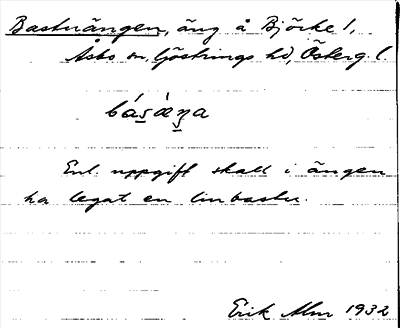 Bastuängen, äng å Björke 1,
Åsbo sn, Göstrings hd, Österg. l
básæ̀ŋa
Enl. uppgift skall i ängen
ha legat en linbastu.
Erik Alm 1932